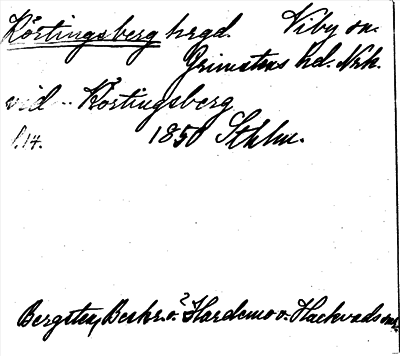 Körtingsberg hrgd. Viby sn.
Grimstens hd. Nrk.
vid - Körtingsberg
f.14. 1850 Sthlm.
Bergsten, Beskr. ö. Hardemo o. Hackvads snr.